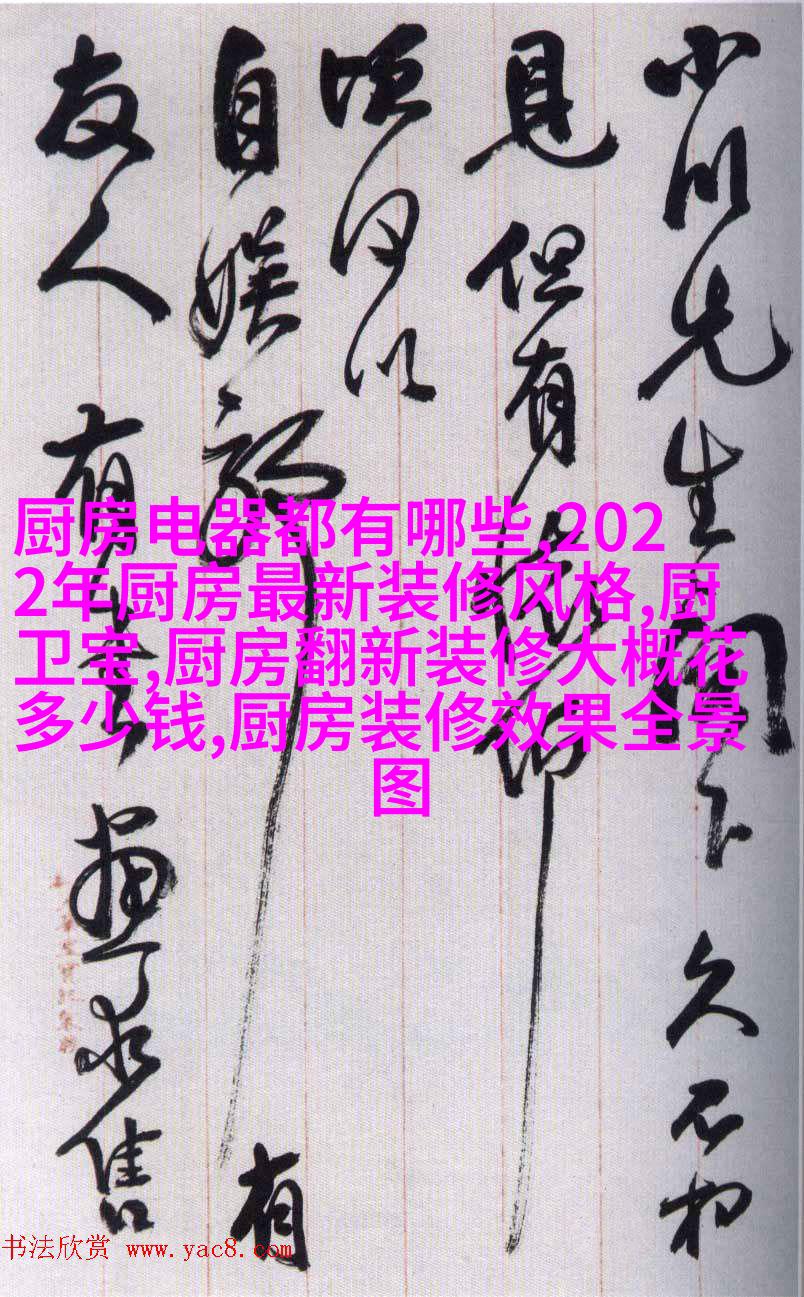 小川先生閣下久不相
見但有仰
何以
自娱有
友人有畫求售
厨房电器都有哪些,202
2年厨房最新装修风格,厨
卫宝,厨房翻新装修大概花
多少钱,厨房装修效果全景
图
书法欣赏 www.yac8.com